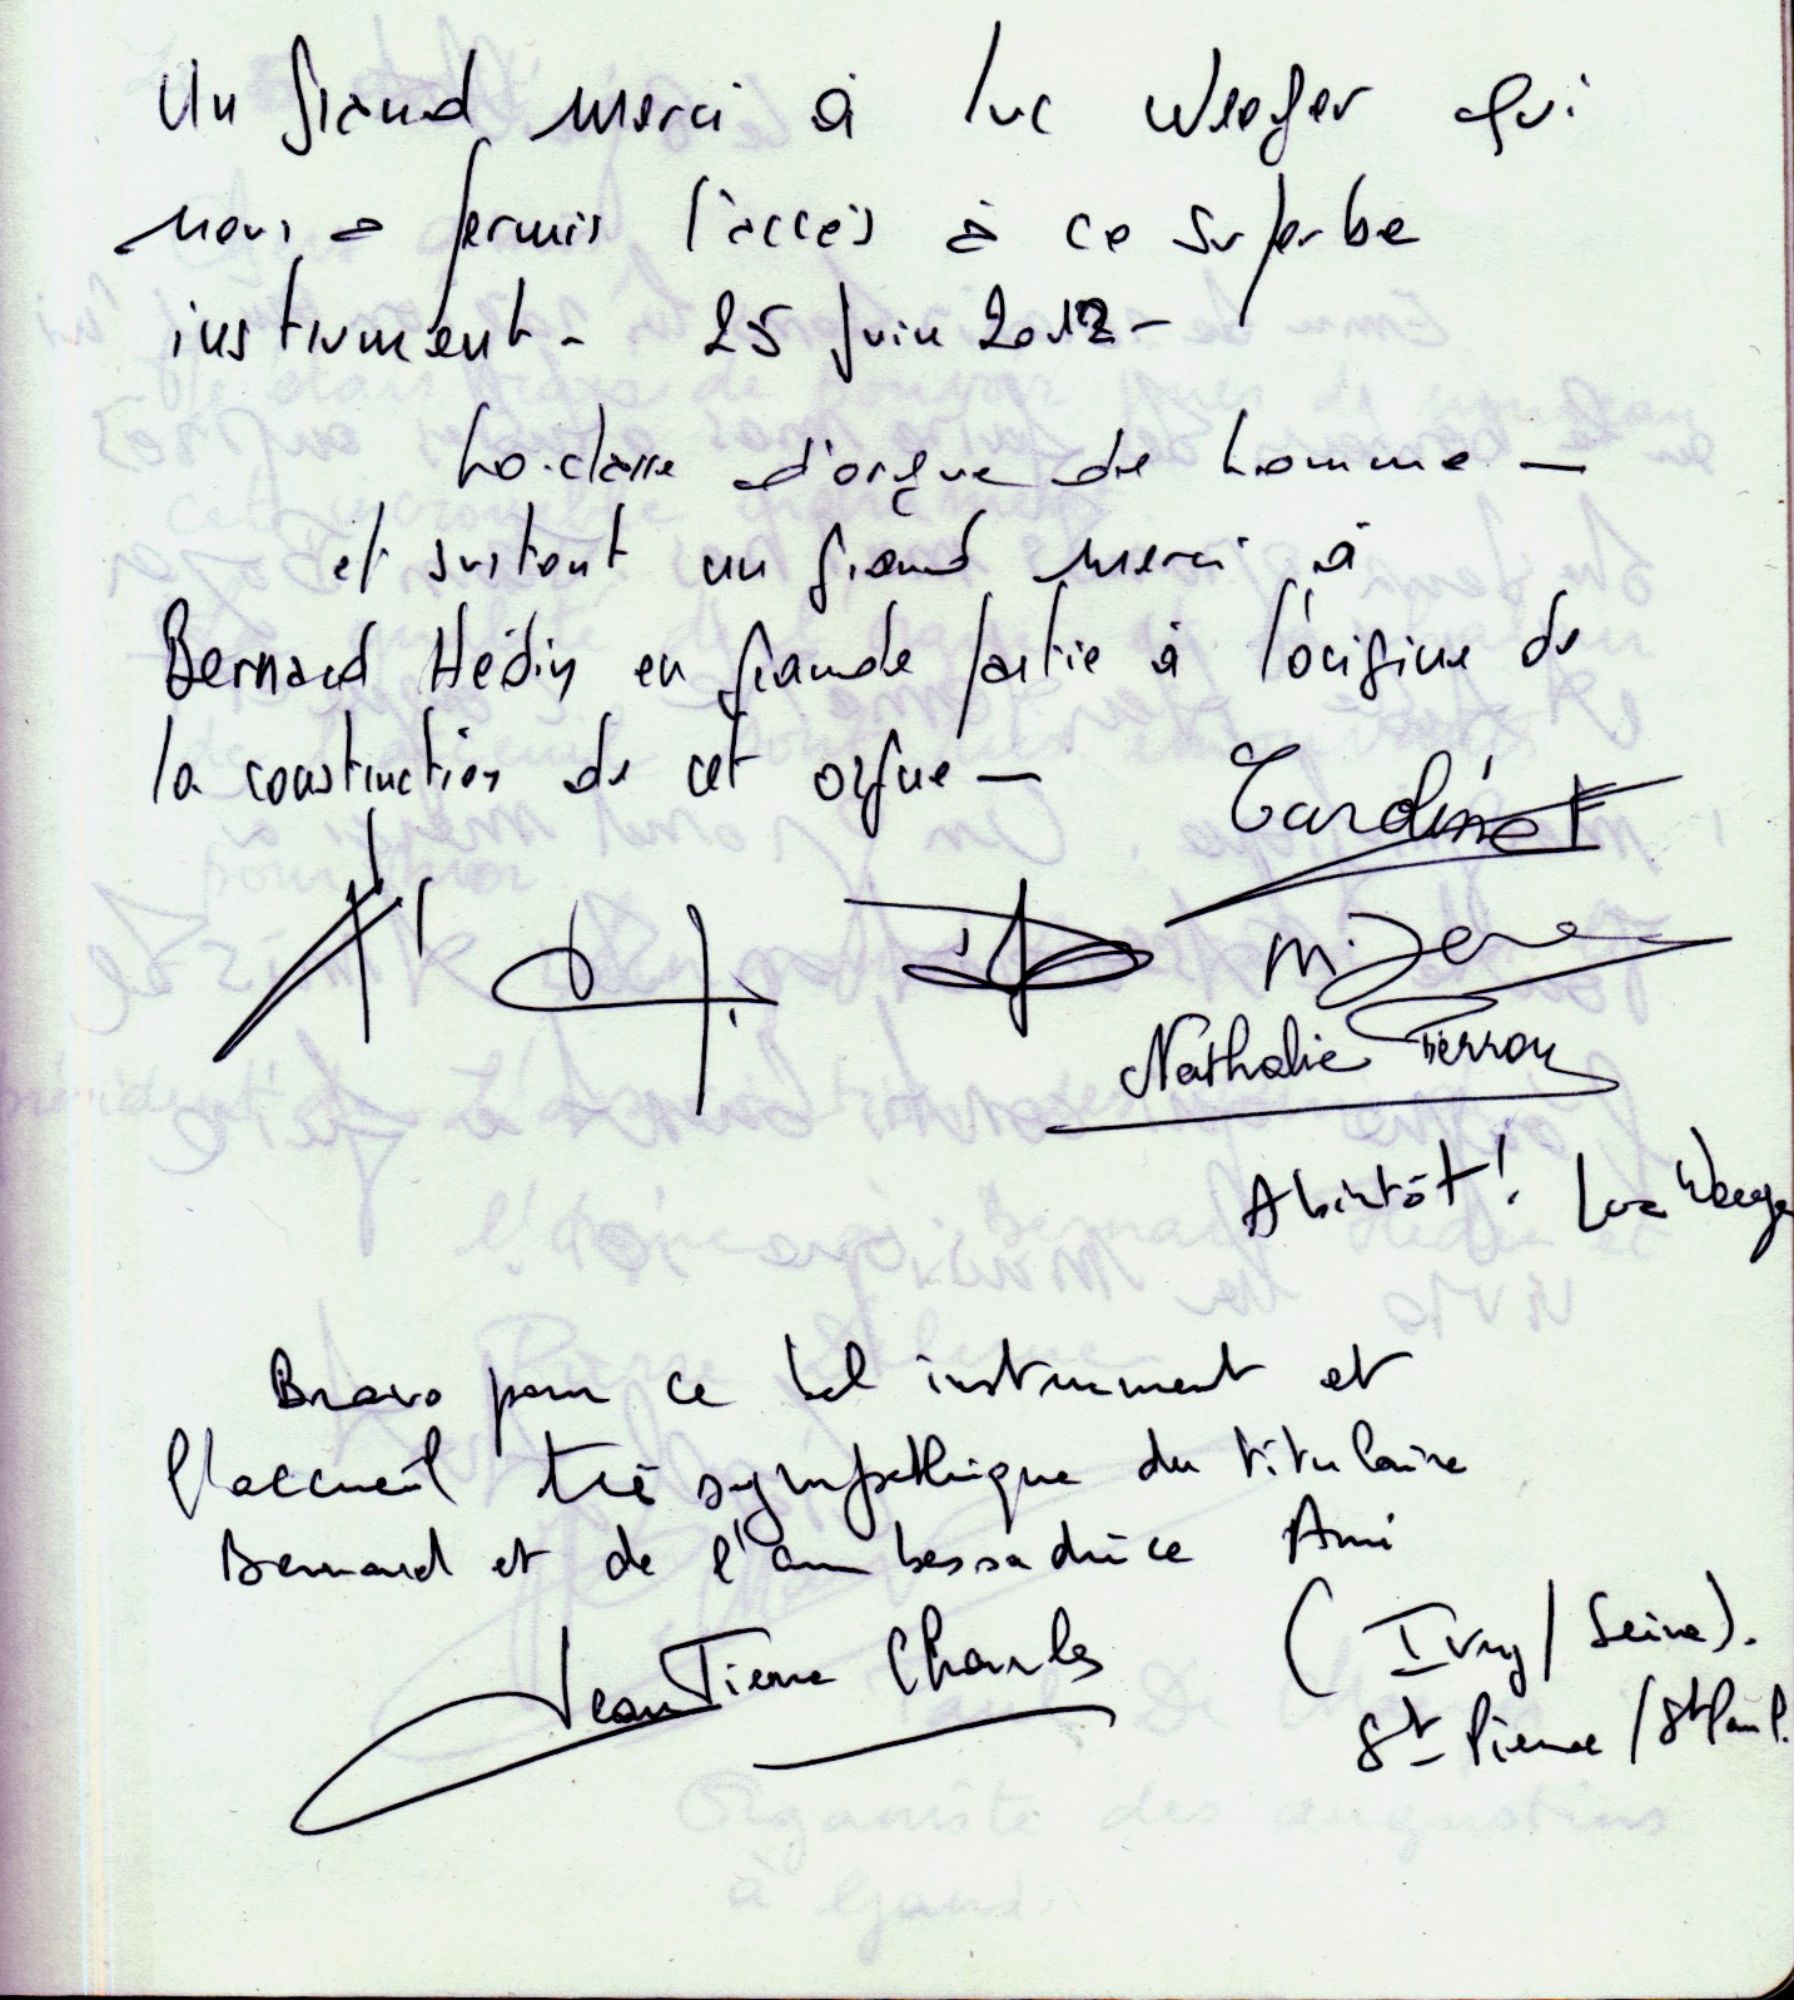 Un grand merci à Luc Weeger qui
nous a permis l'accès à ce superbe
instrument - 25 juin 2012 -
La classe d'orgue de Lomme -
et surtout un grand merci à
Bernard Hédin en grande partie à l'origine de
la construction de cet orgue -
Tardinet
Nathalie Pierron
A bientôt! Luc Weeger
Bravo pour ce bel instrument et
l'accueil trè sympathique du titulaire
Bernard et de l'ambassadrice Ami
Jean Pierre Charles
(Ivry / Seine).
St Pierre / St Paul.